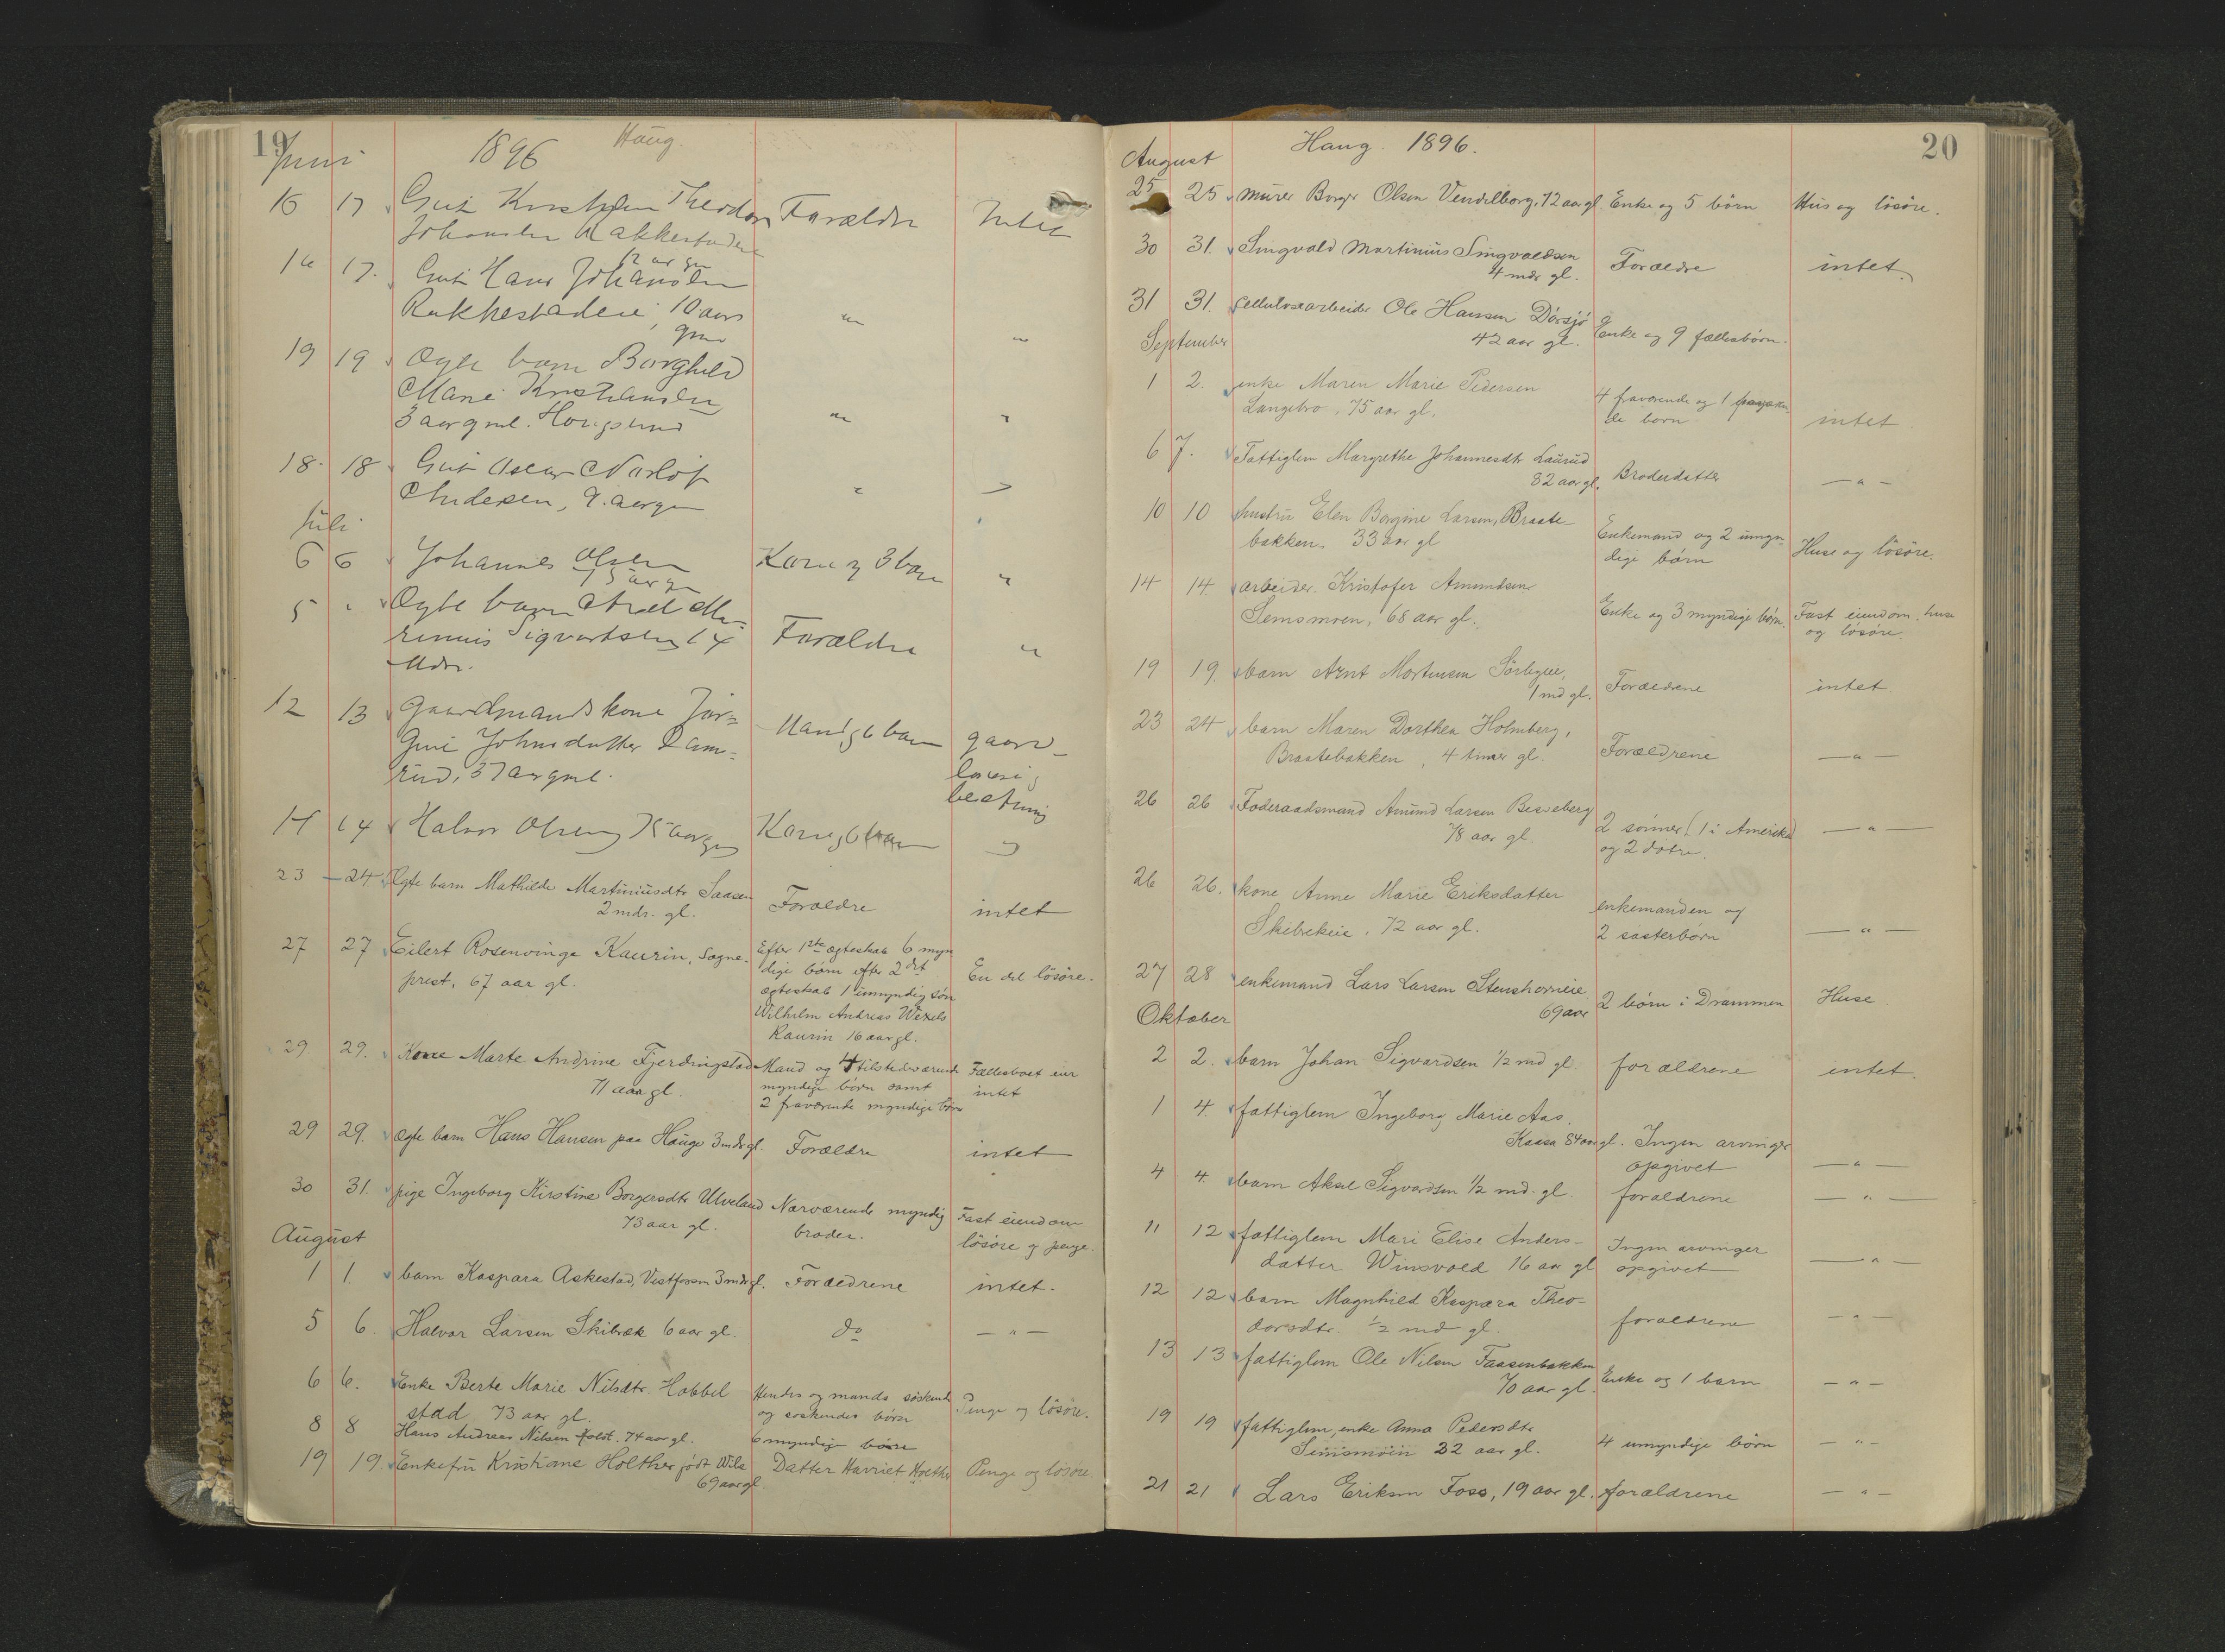 19
Juni 1896 Haug.
16 17 Gut Kristian Theodor Forældre Intet
Johansen Rakkestadeie
12 aar gm
16 17. Gut Hans Johansen
Rakkestadeie, 10 aars " "
gml
19 19 Ægte barn Borghild
Marie Kristiansen
3 aar gml. Hougsund " "
18. 18 Gut Oscar
Andersen, 9. aar gm " "
Juli
6 6 Johannes Olsen Kone og 3 barn "
5 " Ægte barn Axel Ma-
rinius Sigvartsen 14 Forældre "
Mdr.
12 13 Gaardmandskone Jør=
gine Johnsdatter Ram= Mand og 6 barn gaard
rud, 37 aar gml. løsøre
besætning
14 14 Halvor Olsen 75 aar gm Kone og 6 barn "
23 — 24 Ægte barn Mathilde Martiniusdtr Saasen
2 mdr. gl. Forældre intet
27 27 Eilert Rosenvinge Kaurin, Sogne- Efter 1ste ægteskab 6 myn
prest, 67 aar gl. dige børn efter 2det En del løsøre.
ægteskab 1 umyndig søn
Wilhelm Andreas Wexels
Kaurin 16 aar gl.
29 29. Kone Marte Andrine Fjerdingstad Mand og 4 tilstedeværende Fællesboet eier
71 aar gl. myndige børn samt intet
2 fraværende myndige børn
29 29. Ægte barn Hans Hansen paa Hauge 3 mdr gl. Forældre intet
30 31. pige Ingeborg Kirstine Borgersdtr Ulveland Nærværende myndig Fast eiendom
73 aar gl. broder. løsøre og penge.
August
1 1. barn Kaspara Askestad, Vestfossen 3 mdr gl. Forældrene intet.
5 6. Halvor Larsen Skibræk 6 aar gl. do — " —
6 6. Enke Berte Marie Nilsdtr. Hobbel Hendes og mands søskende
stad 73 aar gl. og søskendes børn Penge og løsøre.
8 8 Hans Andreas Nilsen Holdt. 74 aar gl. 6 myndige børn
19 19. Enkefru Kristiane Holther født Wilse Datter Harriet Holther Penge og løsøre.
69 aar gl
20
August Haug. 1896.
25 25 murer Borger Olsen Vendelborg, 72 aar gl. Enke og 5 børn Hus og løsøre.
30 31. Singvald Martinius Singvaldsen
4 mdr gl. Forældre intet.
31 31. Cellulosearbeider Ole Hansen Dørsjø
September 42 aar gl. Enke og 9 fællesbørn.
1 2. enke Maren Marie Pedersen 4 fraværende og 1
Langebro, 75 aar gl. de børn intet
6 7. Fattiglem Margrethe Johannesdtr Laurud
82 aar gl. Broderdatter — " —
10 10 hustru Elen Borgine Larsen, Braate- Enkemand og 2 umyn
bakken. 33 aar gl dige børn Huse og løsøre.
14 14. arbeider Kristofer Amundsen
Semsmoen, 68 aar gl. Enke og 3 myndige børn. Fast eiendom. huse
og løsøre.
19 19. barn Arnt Mortensen Sørbyeie,
1 md gl. Forældrene intet
23 24 barn Maren Dorthea Holmberg,
Braatebakken, 4 timer gl. Forældrene — " —
26 26 Føderaadsmand Amund Larsen Besseberg
78 aar gl. 2 sønner (1 i Amerika) — " —
og 2 døtre.
26 26. kone Anne Marie Eriksdatter enkemanden og
Skibrekeie, 72 aar gl. 2 søsterbørn — " —
27 28 enkemand Lars Larsen Stenshorneie
69 aar 2 børn i Drammen Huse
Oktober
2 2. barn Johan Sigvardsen ½ md gl forældrene intet.
1 4. fattiglem Ingeborg Marie Aas.
Kaasa 84 aar gl. Ingen arvinger
opgivet — " —
4 4 barn Aksel Sigvardsen ½ md. gl. forældrene — " —
11 12 fattiglem Mari Elise Anders- Ingen arvinger
datter Winsvold 16 aar gl opgivet — " —
12 12 barn Magnhild Kaspara Theo-
dorsdtr. ½ md gl. forældrene — " —
13 13 fattiglem Ole Nilsen Faasenbakken
70 aar gl. Enke og 1 barn — " —
19 19 fattiglem, enke Anna Pedersdtr
Semsmoen 32 aar gl. 4 umyndige børn — " —
21 21 Lars Eriksen Foss, 19 aar gl. forældrene — " —